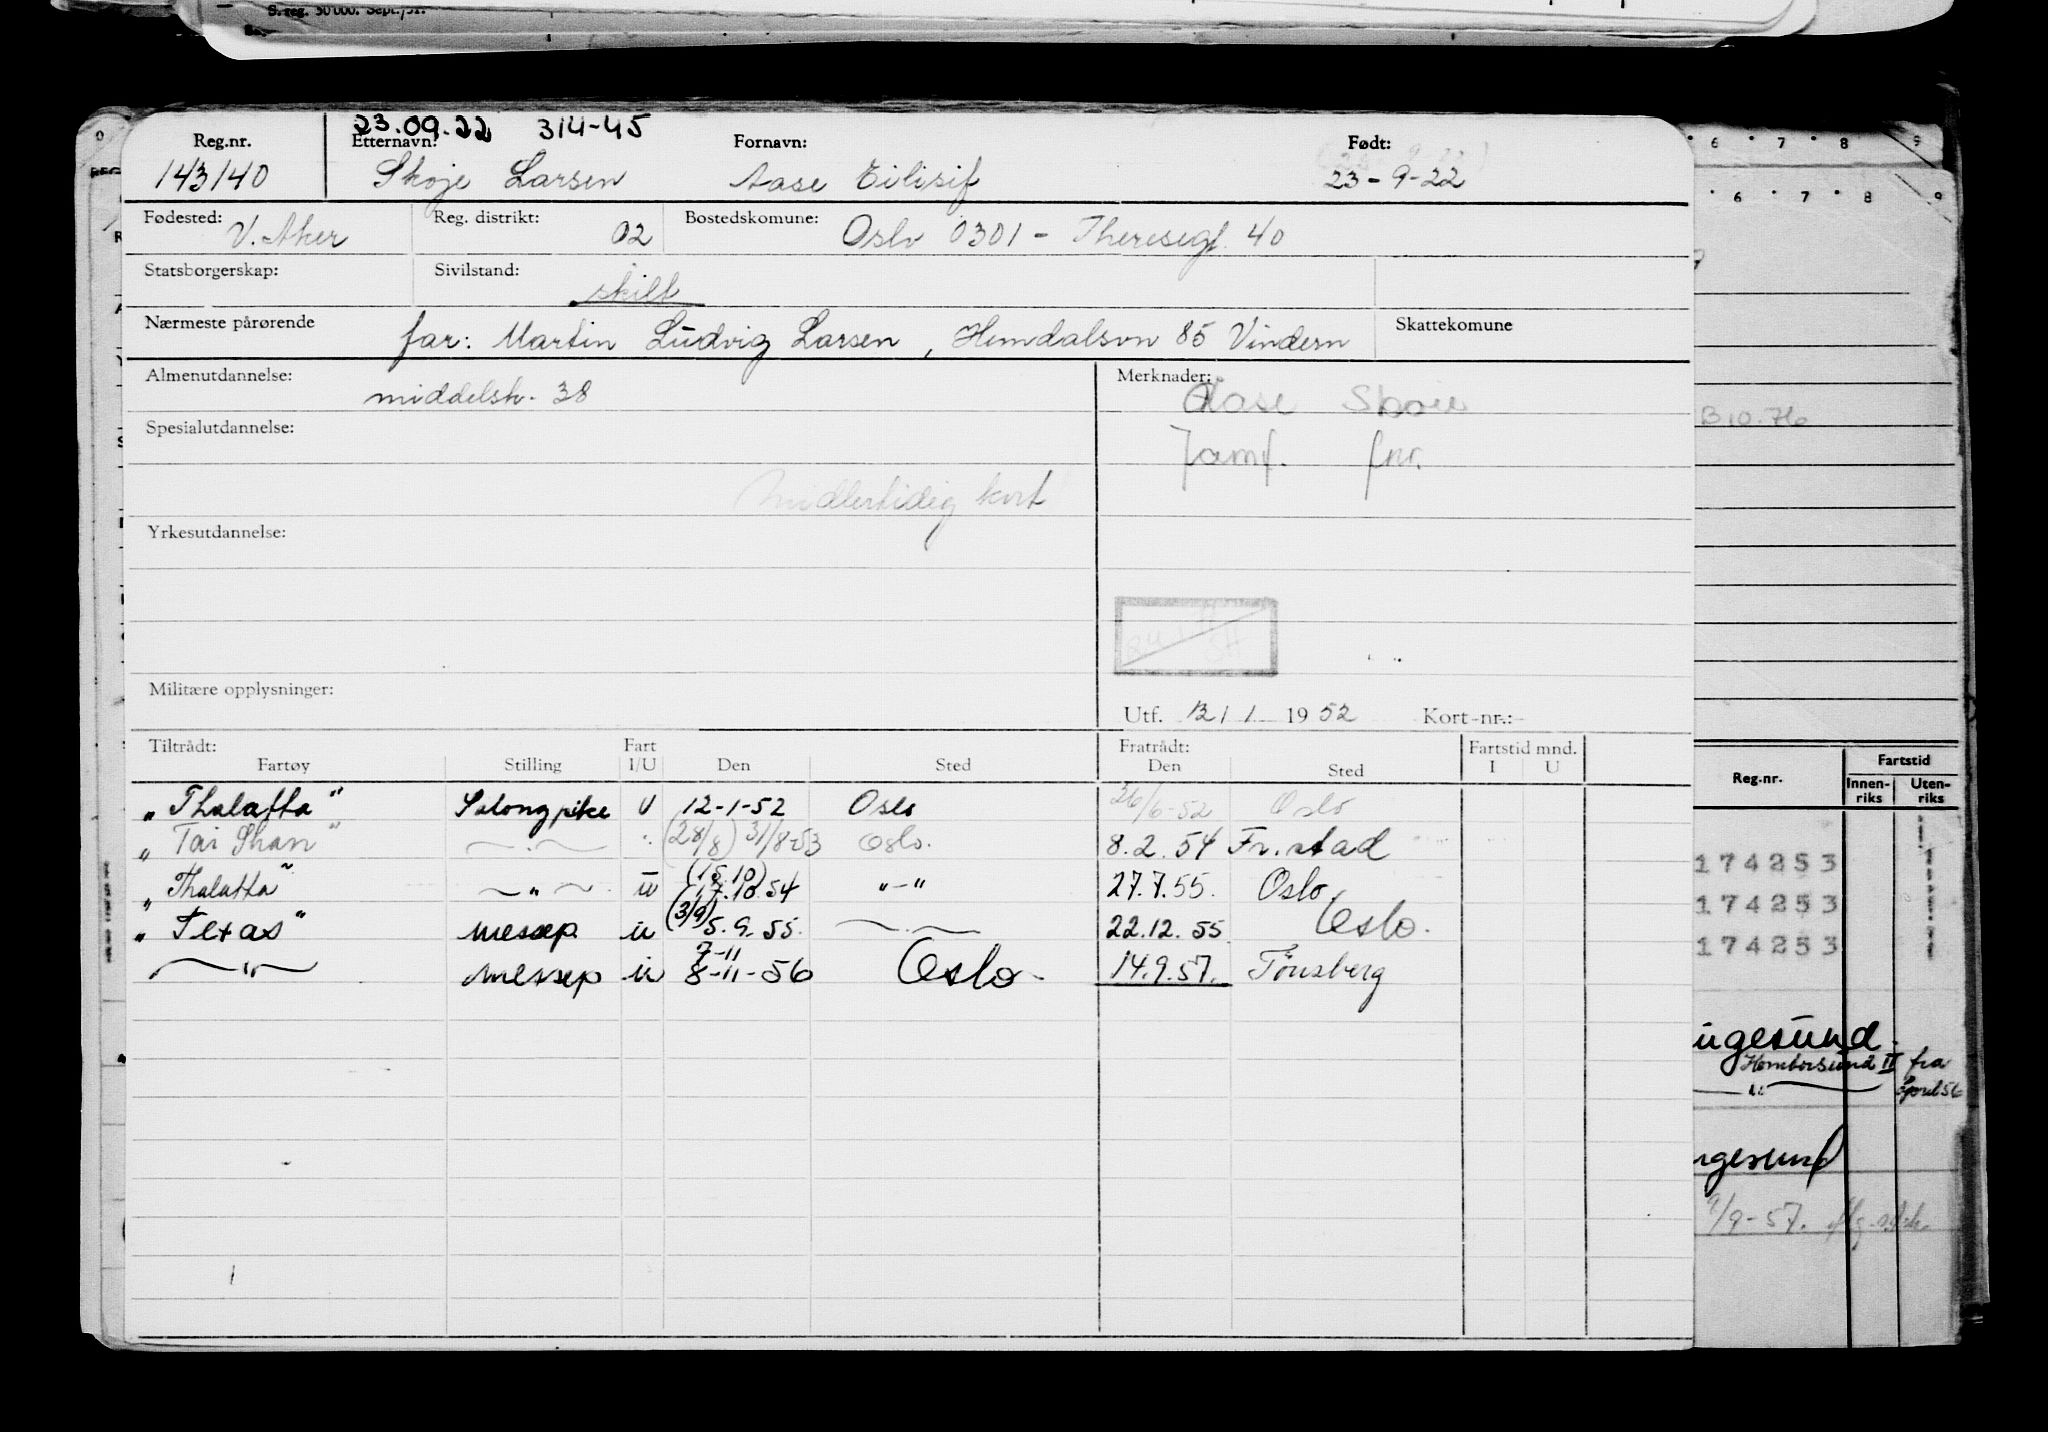 S. reg. 50 000. Sept./51.
23.09.22 314-45
Reg.nr. Etternavn: Fornavn: Født:
143140 Skoje Larsen Aase Eilisif 23-9-22
Fødested: V. Aker Reg. distrikt: 02 Bostedskomune: Oslo 0301 - Theresegt. 40
Statsborgerskap: Sivilstand: skilt
Nærmeste pårørende far: Martin Ludvig Larsen, Hemdalsvn 85 Vindern Skattekomune
Almenutdannelse: middelsk. 38 Merknader: Aase Skoie
Spesialutdannelse: Jamf. fnr.
Midlertidig kort
Yrkesutdannelse:
Militære opplysninger:
Utf. 12/1 1952 Kort-nr.:-
Tiltrådt: Fart Fratrådt: Fartstid mnd.
Fartøy Stilling I/U Den Sted Den Sted I U
"Thalatta" Salongpike U 12-1-52 Oslo 26/6-52 Oslo
"Tai Shan" — " — " (28/8) 31/8-53 Oslo. 8.2.54 Fr.stad
"Thalatta" — " — u (15.10) 17.10.54 "-" 27.7.55. Oslo
"Texas" messep u (3/9) 5.9.55. — " — 22.12.55 Oslo.
— " — messep u 7-11 8-11-56 Oslo- 14.9.57. Tönsberg
6 7 8 9
6 7 8 9
B 10.76
Reg.nr. Fartstid
Innen-riks Uten-riks
174253
174253
174253
ugesund.
Homborsund II fra
— " — april 56
ngesund
9/9-57.